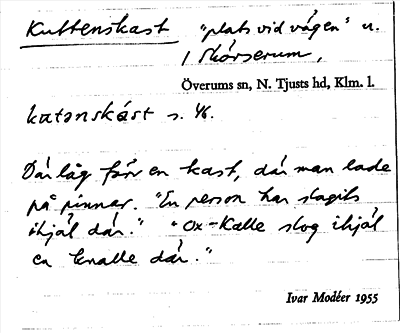 Kuttenskast "plats vid vägen" u.
/ Skörserum,
Överums sn, N. Tjusts hd, Klm. l.
kutənskást s. 46.
Där låg förr en kast, där man lade
på pinnar. "En person har slagits
ihjäl där." "Ox-Kalle slog ihjäl
en knalle där."
Ivar Modéer 1955